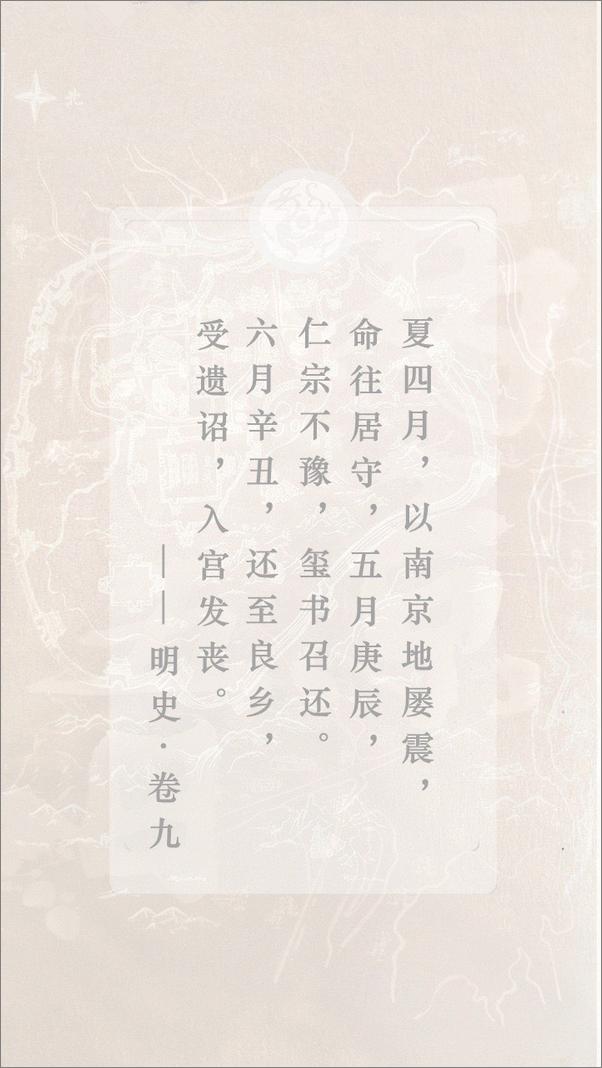 北
夏四月，以南京地屡震，
命往居守，五月庚辰，
仁宗不豫，玺书召还。
六月辛丑，还至良乡，
受遗诏，入宫发丧。
——明史·卷九